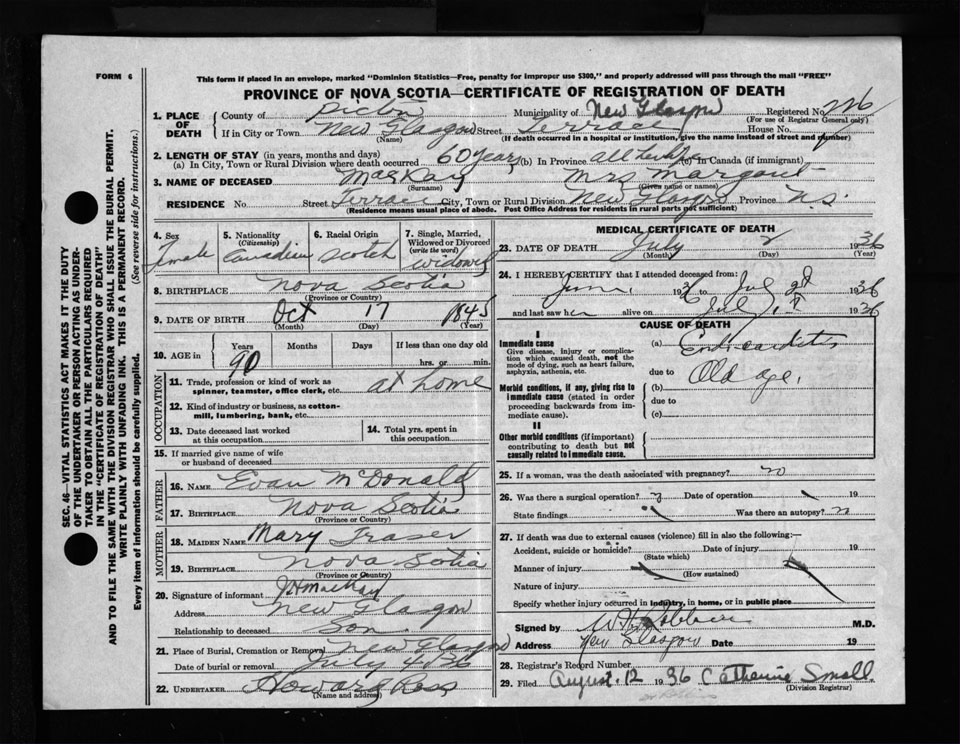 FORM 6
This form if placed in an envelope, marked "Dominion Statistics—Free, penalty for improper use $300," and properly addressed will pass through the mail "FREE"
PROVINCE OF NOVA SCOTIA—CERTIFICATE OF REGISTRATION OF DEATH
1. PLACE OF DEATH County of Pictou Municipality of New Glasgow Registered No.
(For use of Registrar General only)
If in City or Town New Glasgow Street Terrace House No.
(Name) (If death occurred in a hospital or institution, give the name instead of street and number)
2. LENGTH OF STAY (in years, months and days)
(a) In City, Town or Rural Division where death occurred 60 years (b) In Province all her life (c) In Canada (if immigrant)
3. NAME OF DECEASED MacKay Mrs Margaret
(Surname) (Given name or names)
RESIDENCE No. Street Terrace City, Town or Rural Division New Glasgow Province N.S.
(Residence means usual place of abode. Post Office Address for residents in rural parts not sufficient)
4. Sex Female
5. Nationality (Citizenship) Canadian
6. Racial Origin Scotch
7. Single, Married, Widowed or Divorced (write the word) widowed
8. BIRTHPLACE Nova Scotia
(Province or Country)
9. DATE OF BIRTH Oct 17 1845
(Month) (Day) (Year)
10. AGE in Years Months Days If less than one day old
90 hrs. or min.
OCCUPATION
11. Trade, profession or kind of work as spinner, teamster, office clerk, etc. at home
12. Kind of industry or business, as cotton-mill, lumbering, bank, etc.
13. Date deceased last worked at this occupation
14. Total yrs. spent in this occupation
15. If married give name of wife or husband of deceased
FATHER
16. NAME Evan McDonald
17. BIRTHPLACE Nova Scotia
(Province or Country)
MOTHER
18. MAIDEN NAME Mary Fraser
19. BIRTHPLACE Nova Sotia
(Province or Country)
20. Signature of informant MacKay
Address New Glasgow
Relationship to deceased Son
21. Place of Burial, Cremation or Removal New Glasgow
Date of burial or removal July 4 1936
22. UNDERTAKER Howard Ross
(Name and address)
MEDICAL CERTIFICATE OF DEATH
23. DATE OF DEATH July 2 1936
(Month) (Day) (Year)
24. I HEREBY CERTIFY that I attended deceased from:
June 1936 to July 2nd 1936
and last saw her alive on July 1st 1936
CAUSE OF DEATH
I
Immediate cause
Give disease, injury or complication which caused death, not the mode of dying, such as heart failure, asphyxia, asthenia, etc.
(a) Endocarditis
due to Old age.
Morbid conditions, if any, giving rise to immediate cause (stated in order proceeding backwards from immediate cause).
(b)
due to
(c)
II
Other morbid conditions (if important) contributing to death but not causally related to immediate cause.
25. If a woman, was the death associated with pregnancy? no
26. Was there a surgical operation? Date of operation 19
State findings Was there an autopsy? no
27. If death was due to external causes (violence) fill in also the following:—
Accident, suicide or homicide? Date of injury 19
(State which)
Manner of injury
(How sustained)
Nature of injury
Specify whether injury occurred in industry, in home, or in public place
Signed by M.D.
Address New Glasgow Date 19
28. Registrar's Record Number
29. Filed August 12 1936 Catherine Small
(Division Registrar)
SEC. 46—VITAL STATISTICS ACT MAKES IT THE DUTY
OF THE UNDERTAKER OR PERSON ACTING AS UNDER-
TAKER TO OBTAIN ALL THE PARTICULARS REQUIRED
IN THE "CERTIFICATE OF REGISTRATION OF DEATH"
AND TO FILE THE SAME WITH THE DIVISION REGISTRAR WHO SHALL ISSUE THE BURIAL PERMIT.
WRITE PLAINLY WITH UNFADING INK. THIS IS A PERMANENT RECORD.
Every item of information should be carefully supplied. (See reverse side for instructions.)